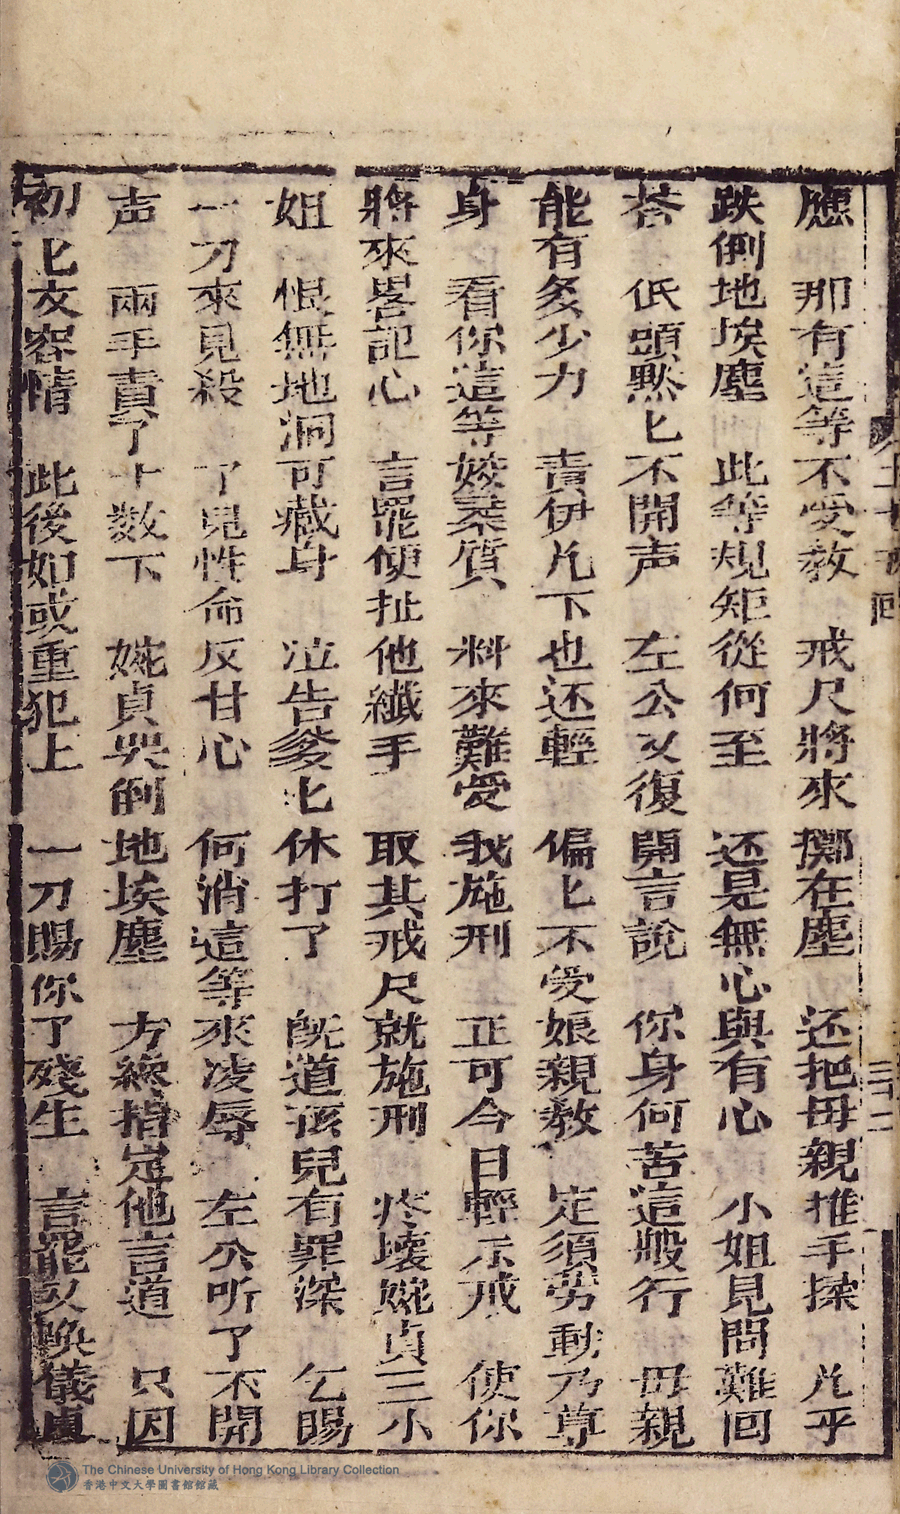 應 那有這等不受教 戒尺將來擲在塵 还把母親推手揉 几乎
跌倒地埃塵 此等規矩從何至 还是無心與有心 小姐見問難回
荅 低頭黙匕不開声 左公又復開言說 你身何苦這般行 母親
能有多少力 責伊几下也还輕 偏匕不受娘親教 定須劳動乃尊
身 看你這等姣柔質 料來難受我施刑 正可今日輕示戒 使你
將來畧記心 言罷便扯他纎手 取其戒尺就施刑 疼壞婉貞三小
姐 恨無地洞可藏身 泣告爹匕休打了 旣道孩兒有罪深 乞賜
一刀來見殺 了兒性命反甘心 何消這等來凌辱 左公听了不開
声 兩手責了十数下 婉貞哭倒地埃塵 方纔指定他言道 只因
初匕文容情 此後如或重犯上 一刀賜你了殘生 言罷又喚儀貞
The Chinese University of Hong Kong Library Collection
香港中文大學圖書館館藏